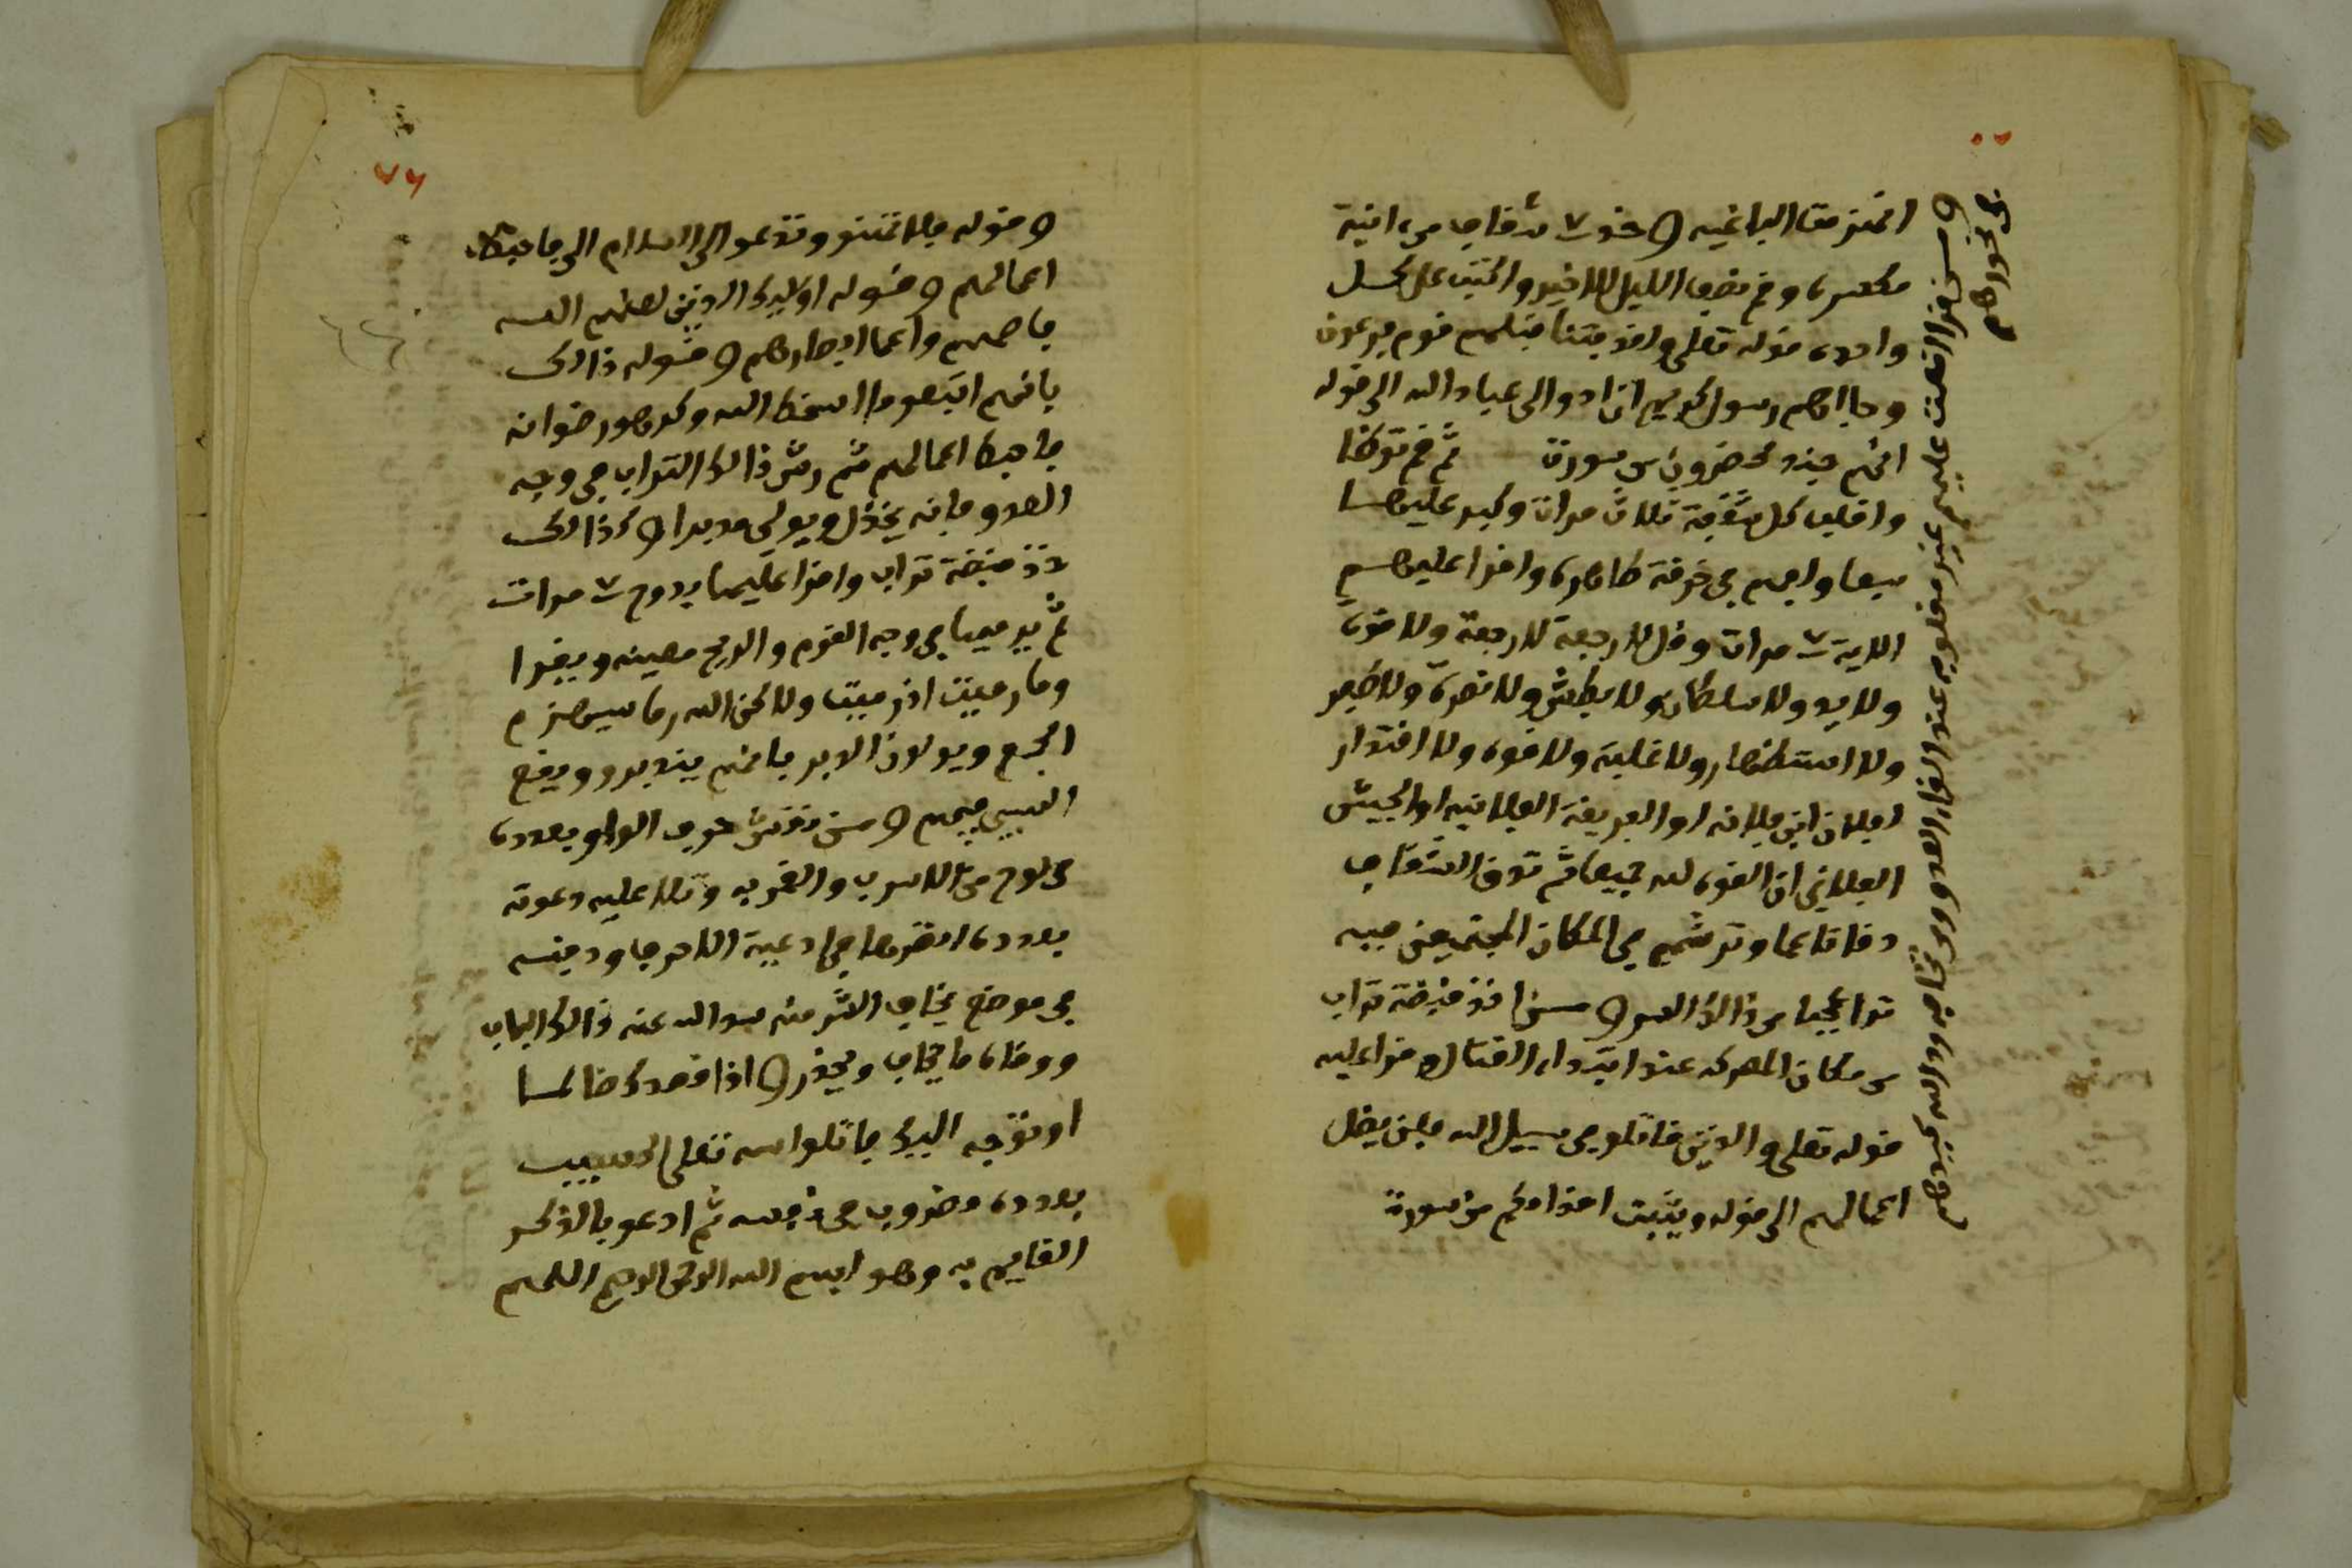 انهزمت الباغيه و خذ ٧ شقاف من انية
مكسره وقم نصف الليل الاخير واكتب على كل
واحده قوله تعلى ولقد فتنا قبلهم قوم فرعون
وجااهم رسول كريم ان ادوا الى عباد الله الى قوله
انهم جند محضرون من سورة ثم قم توظا
واقلب كل شقفة ثلاث مرات وكبر عليها
سبعا ولفهم في خرقة طاهره واقرا عليهم
الاية ٧ مرات وقل لا رجعة لا رجعة ولا قوه
ولا يد ولا سلطان ولا بطش ولا نصره ولا ظهر
ولا استظهار ولا غلبة ولا قوه ولا اقتدار
لفلان ابن فلانه او الفريقة الفلانيه او الجيش
الفلاني ان القوه لله جميعا ثم تدق الشقاف
دقا ناعما وترشهم في المكان المجتمعين فيه
ترا عجبا من ذالك السر و من اخذ قبضة تراب
من مكان المعركه عند ابتداء القتال وقرا عليه
قوله تعلى والذين قاتلو في سبيل الله فلن يضل
اعمالهم الى قوله ويثبت اقدامكم من سورة
في نحورهم
و قوله فلا تهنو وتدعو الى السلام الى فاحبط
اعمالهم و قوله اولايك الذين لعنهم الله
فاصمهم واعما ابصارهم و قوله ذالك
بانهم اتبعو ما اسخط الله وكرهو رضوانه
فاحبط اعمالهم ثم رش ذالك التراب في وجه
العدو فانه يخذل ويولي مدبرا و كذالك
خذ قبضة تراب واقرا عليها بدوح ٧ مرات
ثم يرميها في وجه القوم والريح معينه ويقرا
وما رميت اذ رميت ولاكن الله رما سيهزم
الجمع ويولون الدبر فانهم يندبرو ويقع
السيف فيهم و من نقش حرف الواو بعدده
في لوح من الاسرب والقمر به وتلا عليه دعوته
بعدده انظرها في ادعية الاحرف ودفنه
في موضع يخاف الشر منه سد الله عنه ذالك الباب
ووقاه ما يخاف ويحذر و اذا قصدك ظالما
او توجه اليك فاتلوا اسمه تعلى الحسيب
بعدده مضروب في نفسه ثم ادعو بالذكر
القايم به وهو بسم الله الرحمن الرحيم اللهم